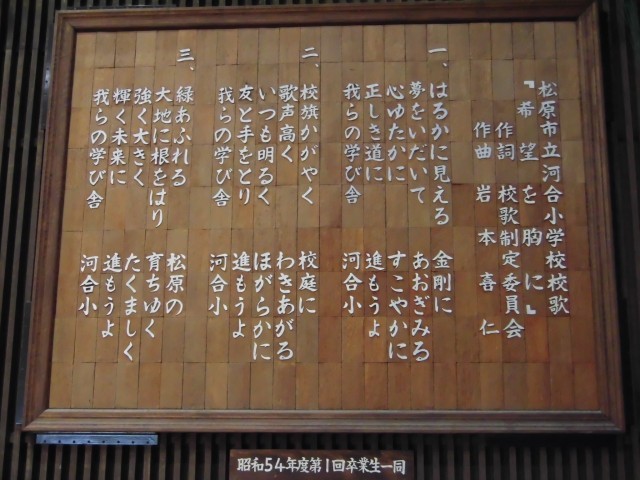 松原市立河合小学校校歌
『希望を胸に』
作詞 校歌制定委員会
作曲 岩本喜仁
一、はるかに見える 金剛に
夢をいだいて あおぎみる
心ゆたかに すこやかに
正しき道に 進もうよ
我らの学び舎 河合小
二、校旗かがやく 校庭に
歌声高く わきあがる
いつも明るく ほがらかに
友と手をとり 進もうよ
我らの学び舎 河合小
三、緑あふれる 松原の
大地に根をはり 育ちゆく
強く大きく たくましく
輝く未来に 進もうよ
我らの学び舎 河合小
昭和54年度第1回卒業生一同